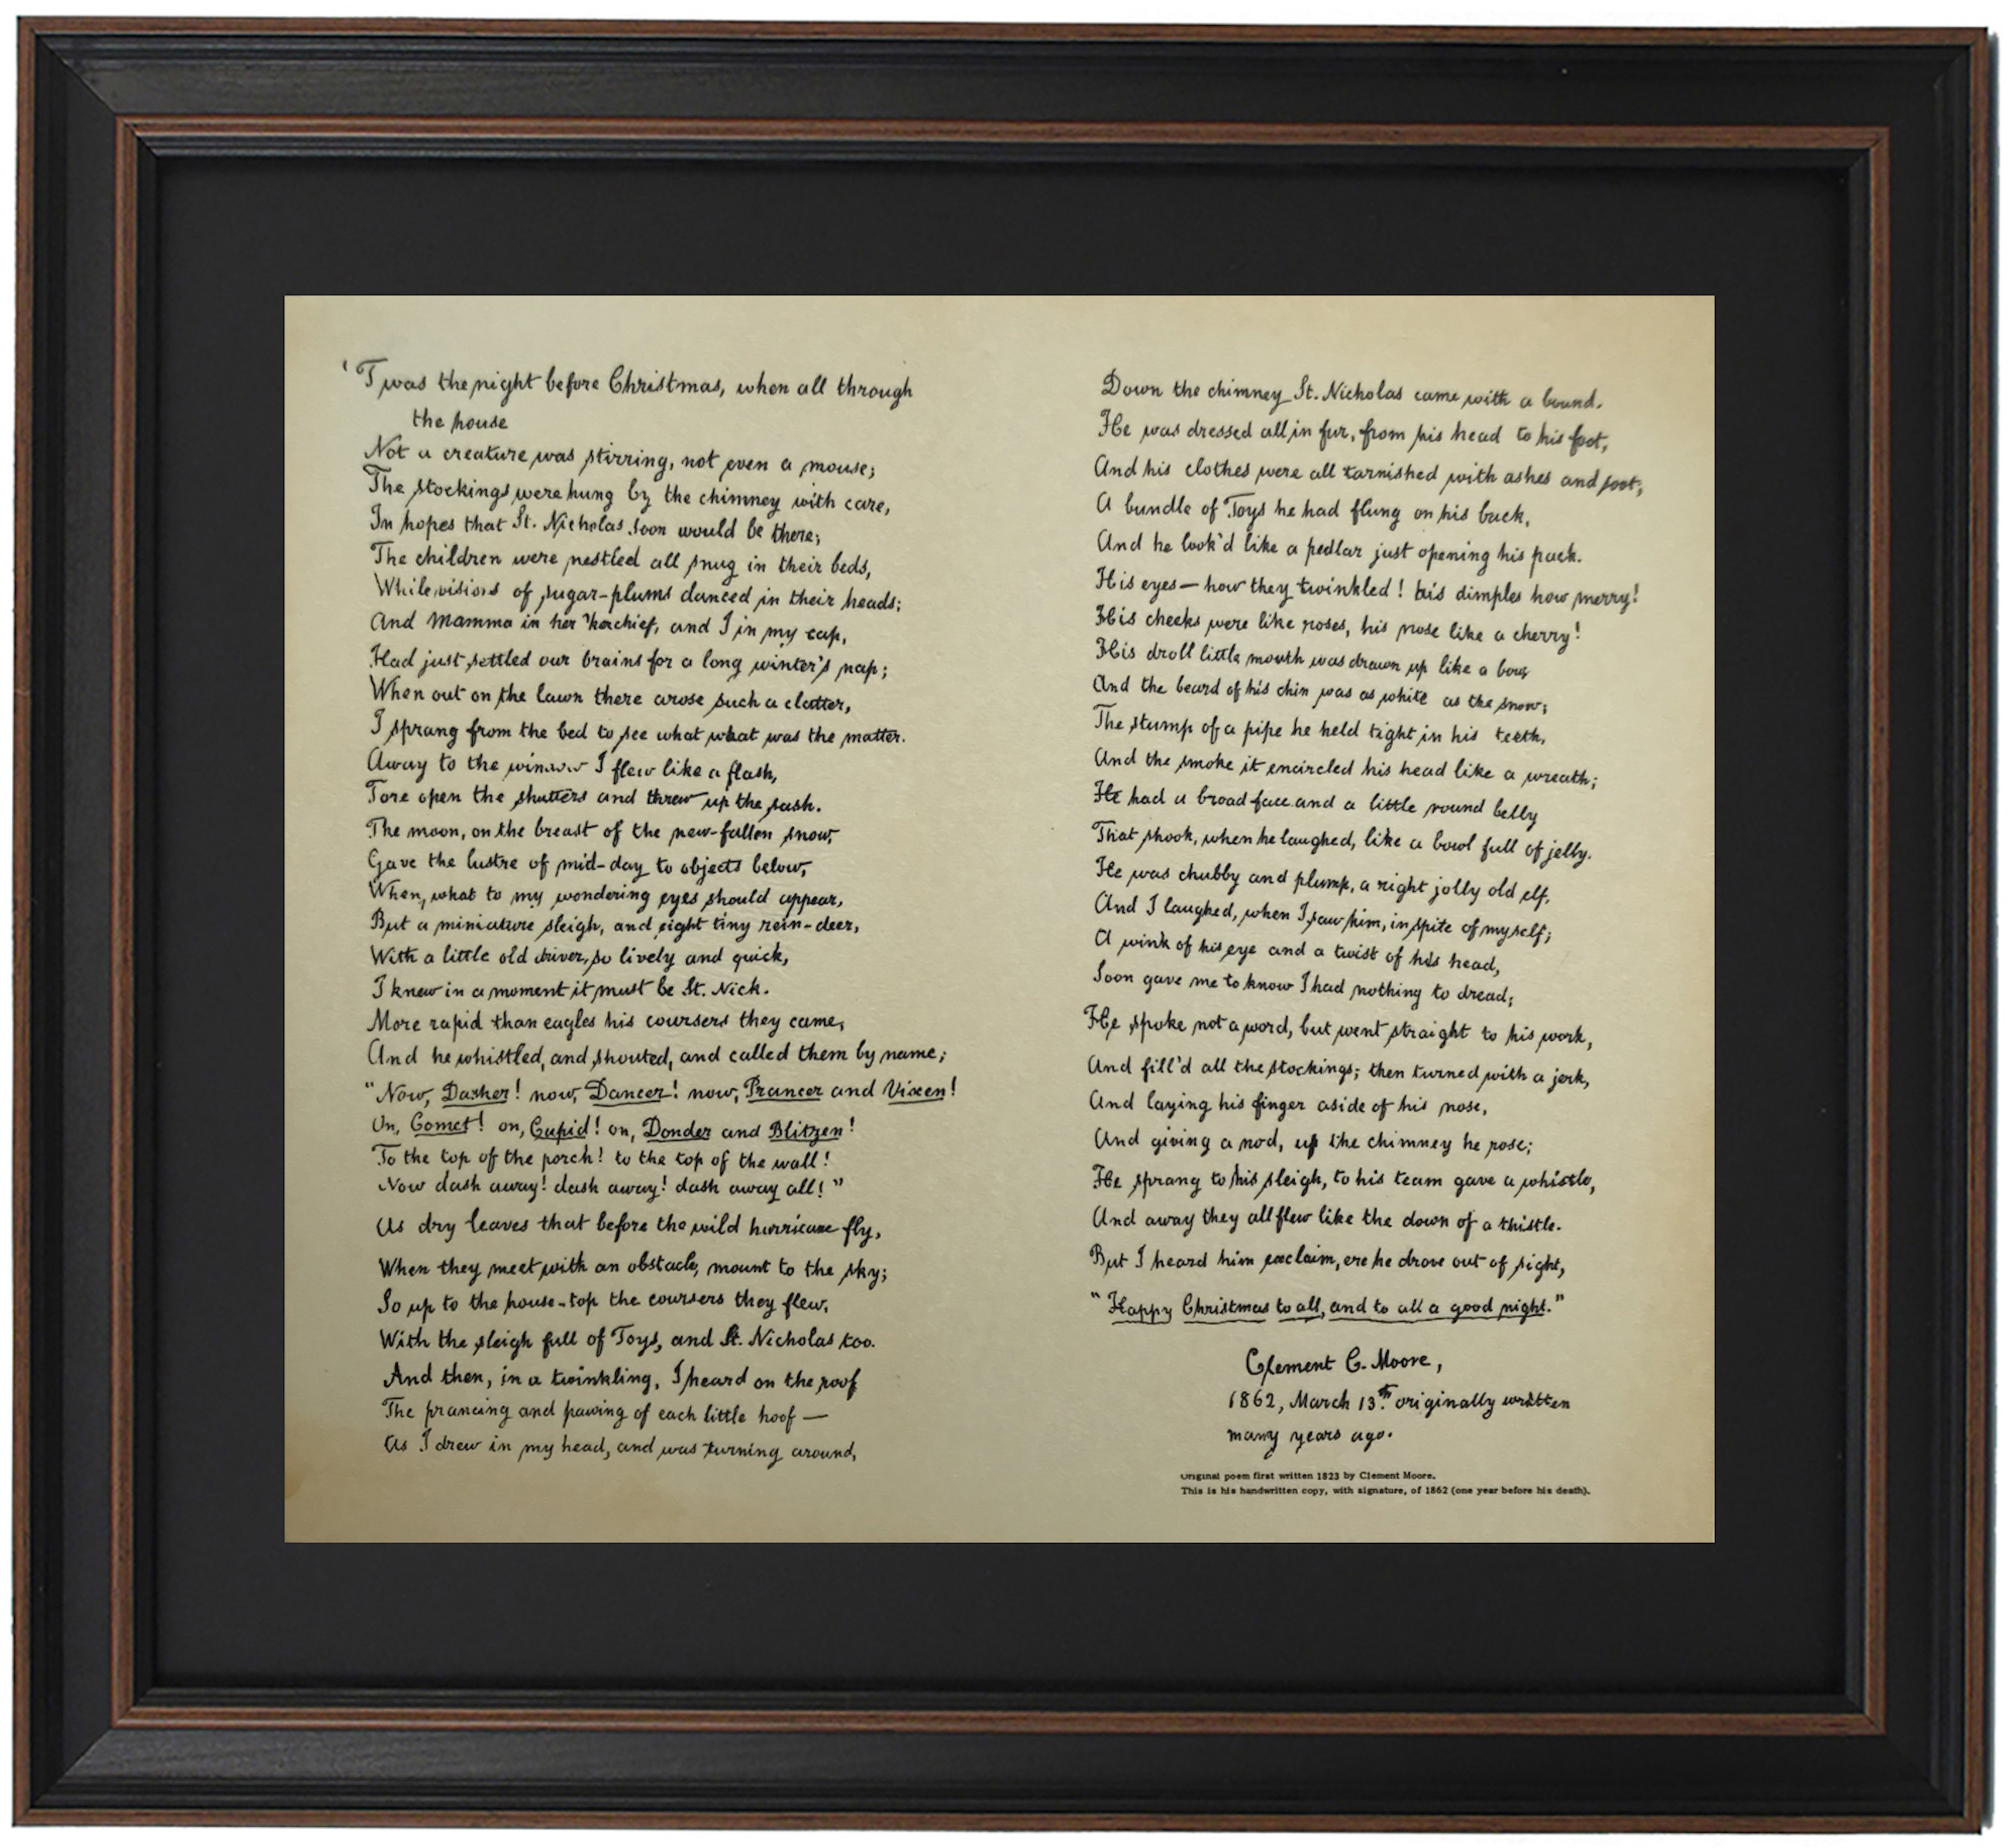 'Twas the night before Christmas, when all through
the house
Not a creature was stirring, not even a mouse;
The stockings were hung by the chimney with care,
In hopes that St. Nicholas soon would be there;
The children were nestled all snug in their beds,
While visions of sugar-plums danced in their heads;
And Mamma in her 'kerchief, and I in my cap,
Had just settled our brains for a long winter's nap;
When out on the lawn there arose such a clatter,
I sprang from the bed to see what what was the matter.
Away to the window I flew like a flash,
Tore open the shutters and threw up the sash.
The moon, on the breast of the new-fallen snow,
Gave the lustre of mid-day to objects below,
When, what to my wondering eyes should appear,
But a miniature sleigh, and eight tiny rein-deer,
With a little old driver, so lively and quick,
I knew in a moment it must be St. Nick.
More rapid than eagles his coursers they came,
And he whistled, and shouted, and called them by name;
"Now, Dasher! now, Dancer! now, Prancer and Vixen!
On, Comet! on, Cupid! on, Donder and Blitzen!
To the top of the porch! to the top of the wall!
Now dash away! dash away! dash away all!"
As dry leaves that before the wild hurricane fly,
When they meet with an obstacle, mount to the sky;
So up to the house-top the coursers they flew,
With the sleigh full of Toys, and St. Nicholas too.
And then, in a twinkling, I heard on the roof
The prancing and pawing of each little hoof—
As I drew in my head, and was turning around,
Down the chimney St. Nicholas came with a bound.
He was dressed all in fur, from his head to his foot,
And his clothes were all tarnished with ashes and soot;
A bundle of Toys he had flung on his back,
And he look'd like a pedlar just opening his pack.
His eyes—how they twinkled! his dimples how merry!
His cheeks were like roses, his nose like a cherry!
His droll little mouth was drawn up like a bow
And the beard of his chin was as white as the snow;
The stump of a pipe he held tight in his teeth,
And the smoke it encircled his head like a wreath;
He had a broad face and a little round belly
That shook, when he laughed, like a bowl full of jelly.
He was chubby and plump, a right jolly old elf,
And I laughed, when I saw him, in spite of myself;
A wink of his eye and a twist of his head,
Soon gave me to know I had nothing to dread;
He spoke not a word, but went straight to his work,
And fill'd all the stockings; then turned with a jerk,
And laying his finger aside of his nose,
And giving a nod, up the chimney he rose;
He sprang to his sleigh, to his team gave a whistle,
And away they all flew like the down of a thistle.
But I heard him exclaim, ere he drove out of sight,
"Happy Christmas to all, and to all a good night."
Clement C. Moore,
1862, March 13th. originally written
many years ago.
Original poem first written 1823 by Clement Moore.
This is his handwritten copy, with signature, of 1862 (one year before his death).